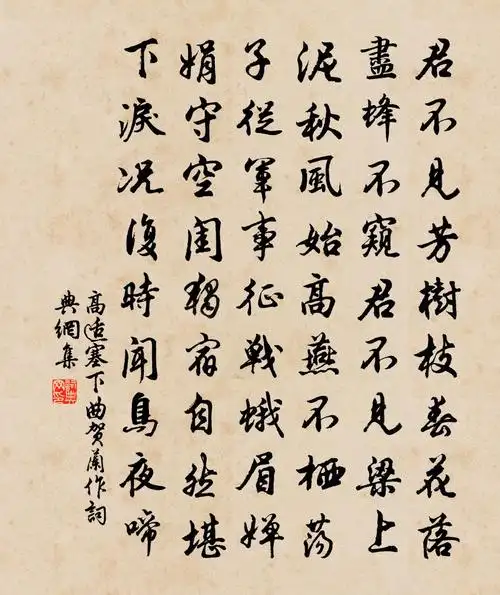 君不見芳樹枝春花落
盡蜂不窺君不見梁上
泥秋風始高燕不栖蕩
子從軍事征戰蛾眉嬋
娟守空閨獨宿自然堪
下淚況復時聞鳥夜啼
高適塞下曲賀蘭作詞
典網集